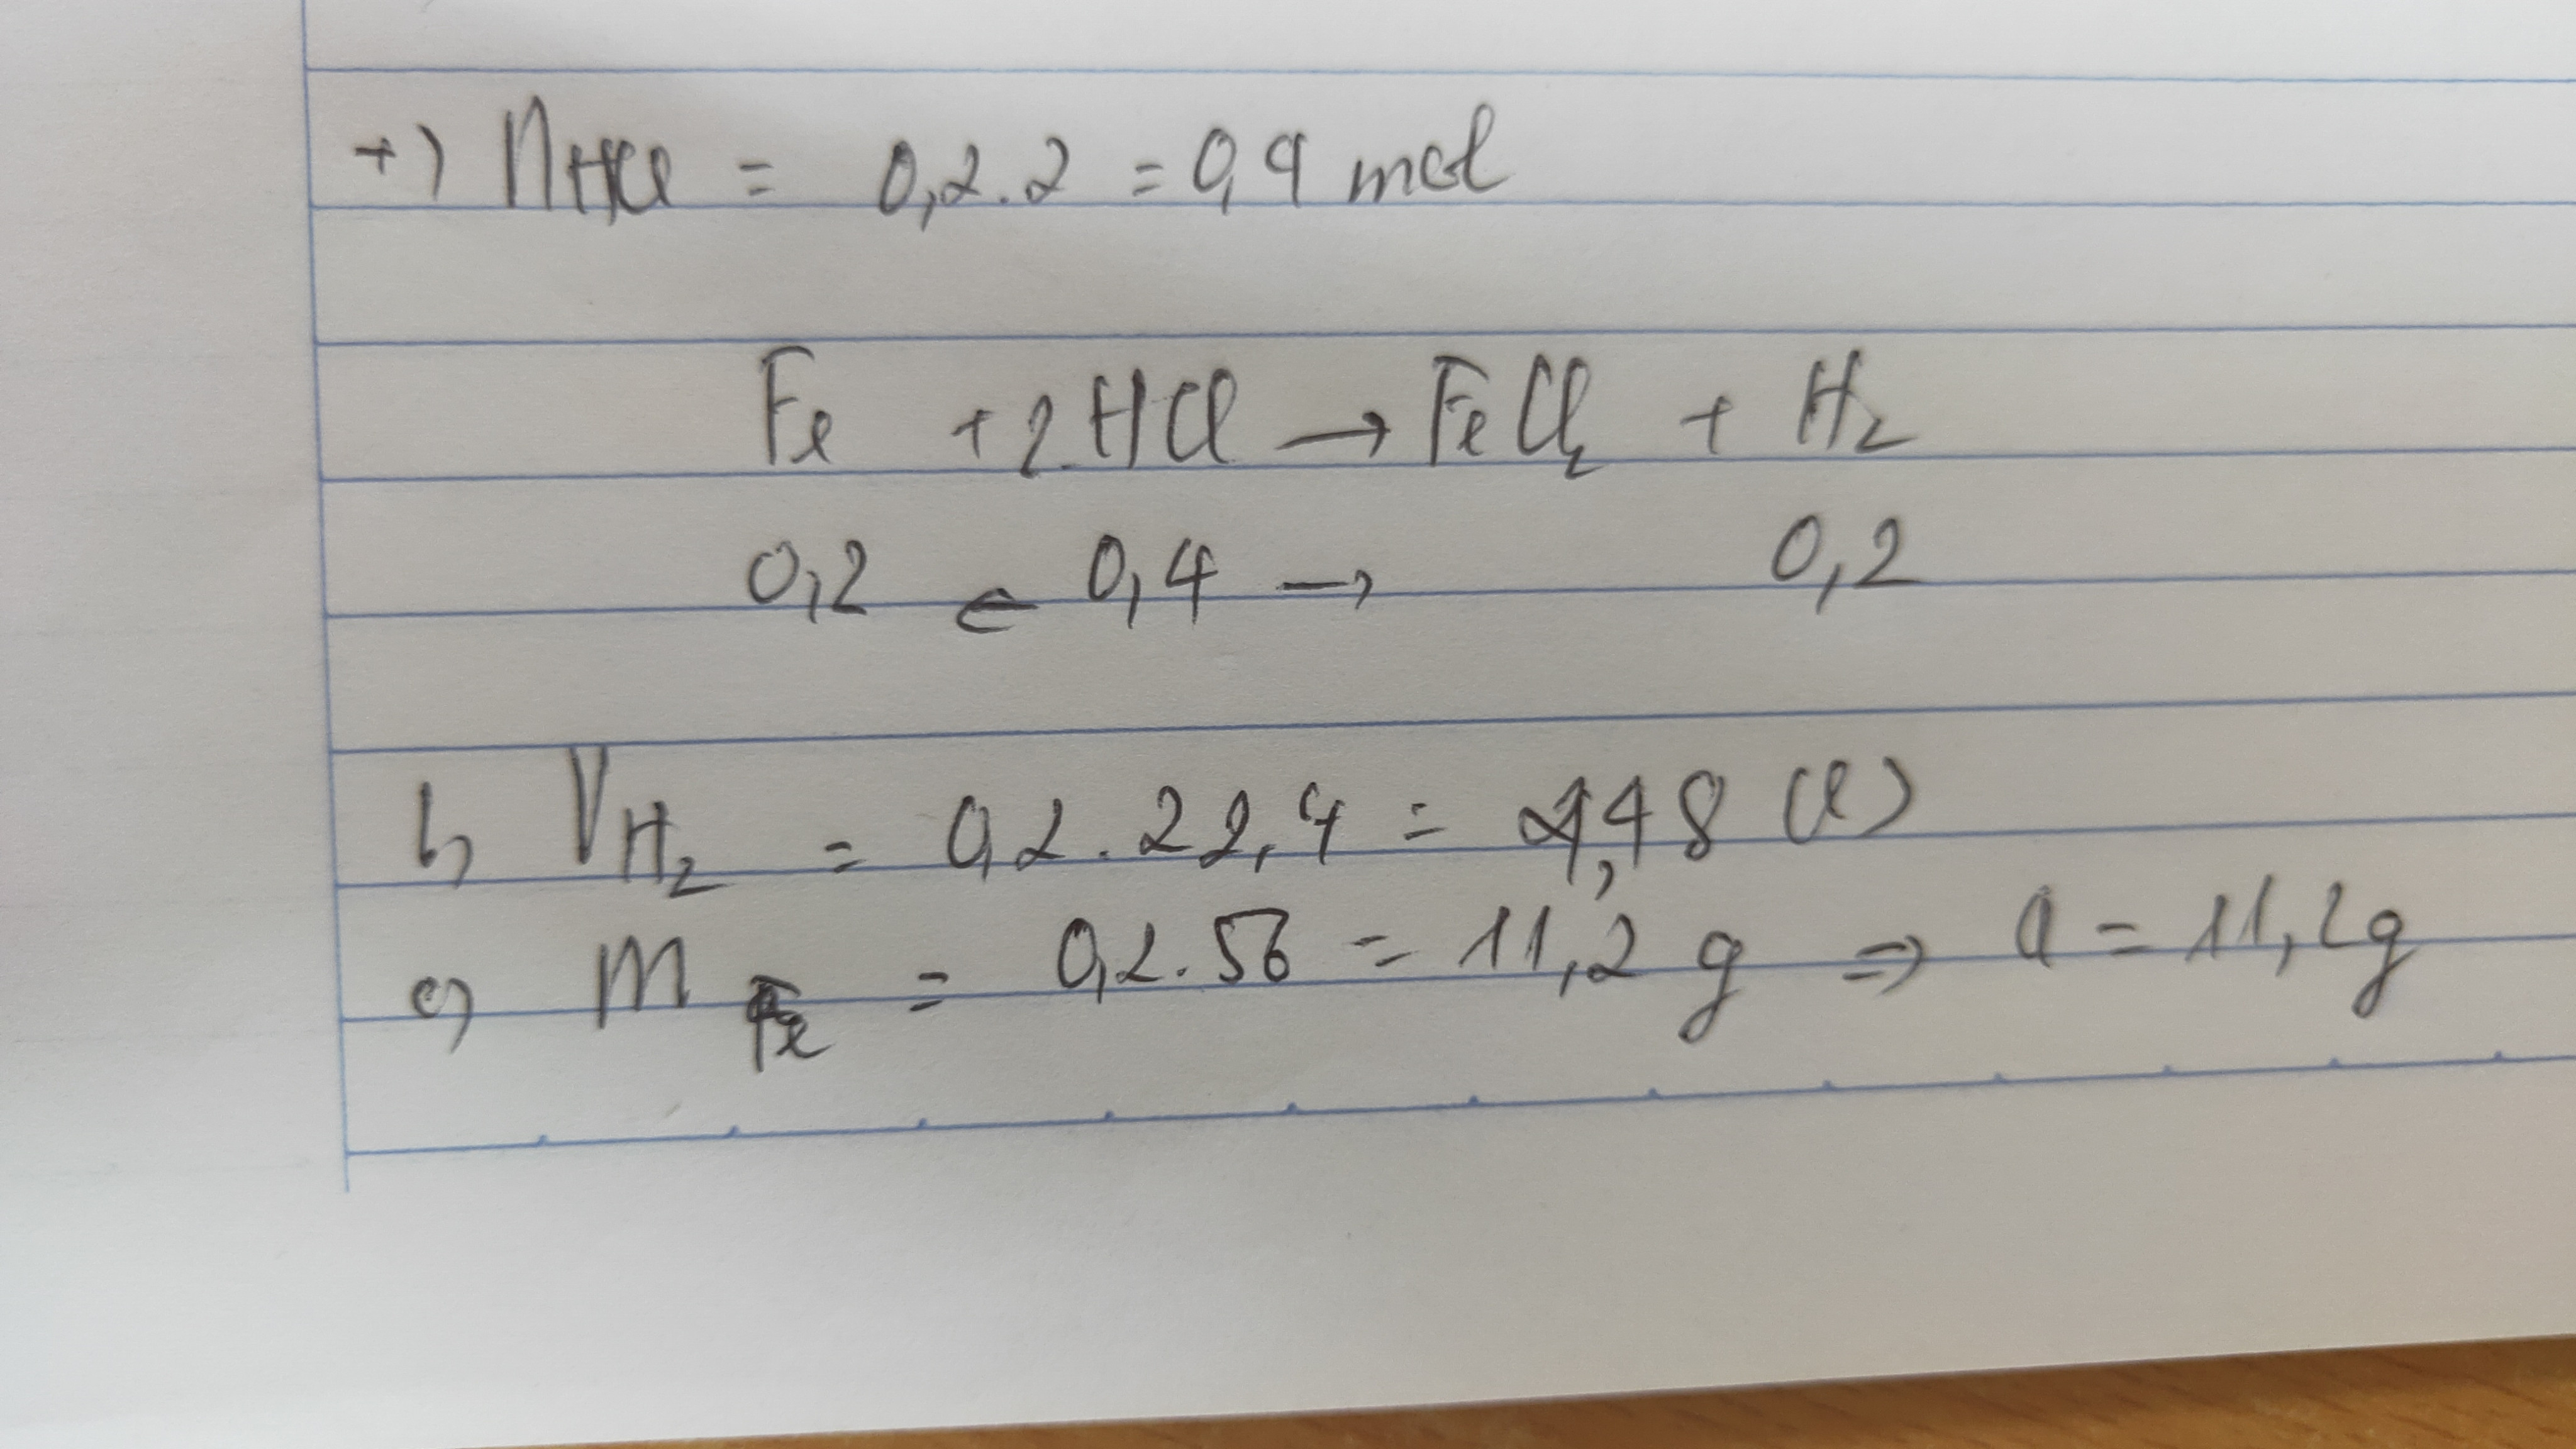 +) nHCl = 0,2.2 = 0,4 mol
Fe + 2HCl → FeCl2 + H2
0,2 ← 0,4 → 0,2
b, VH2 = 0,2.22,4 = 4,48 (l)
c, mFe = 0,2.56 = 11,2 g ⇒ a = 11,2g